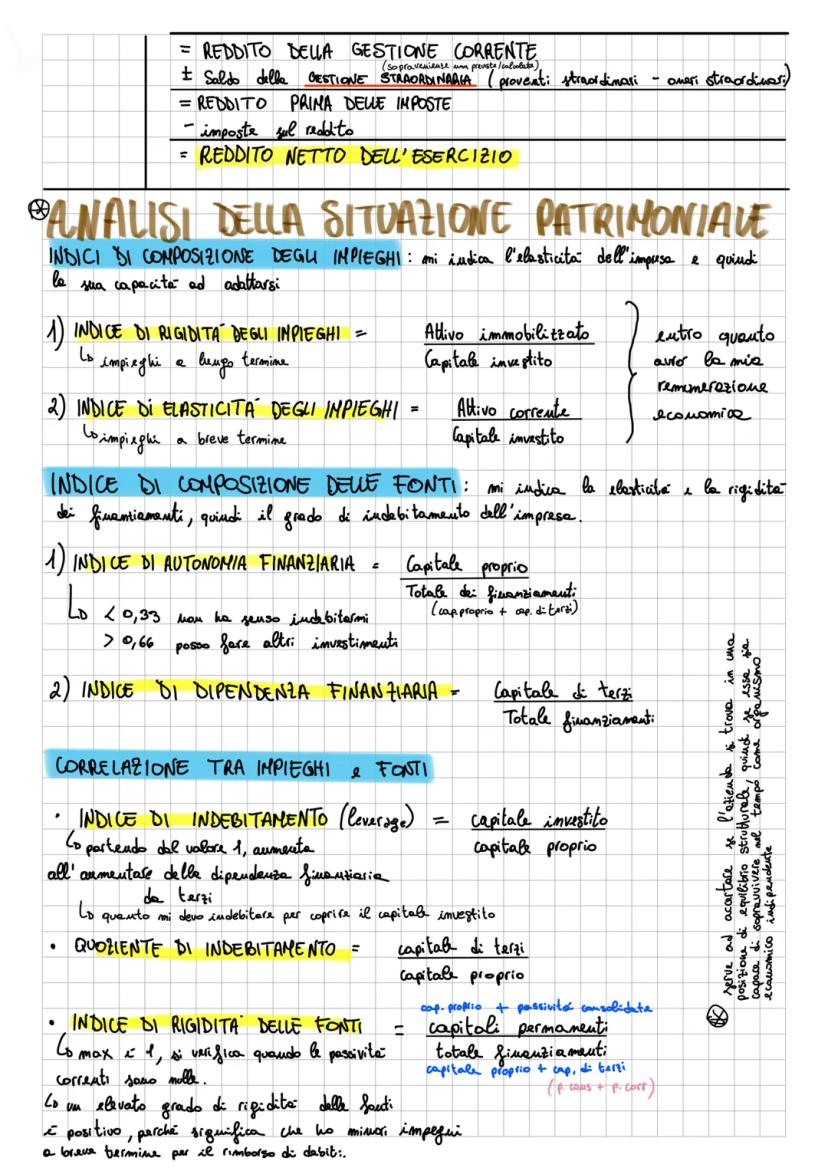 = REDDITO DELLA GESTIONE CORRENTE
(sopravvenienze non previste/calcolate)
± Saldo della GESTIONE STRAORDINARIA (proventi straordinari - oneri straordinari)
= REDDITO PRIMA DELLE IMPOSTE
- imposte sul reddito
= REDDITO NETTO DELL'ESERCIZIO
ANALISI DELLA SITUAZIONE PATRIMONIALE
INDICI DI COMPOSIZIONE DEGLI IMPIEGHI: mi indica l'elasticità dell'impresa e quindi
la sua capacità ad adattarsi
1) INDICE DI RIGIDITÀ DEGLI IMPIEGHI = Attivo immobilizzato
Capitale investito
↳ impieghi a lungo termine
2) INDICE Di ELASTICITÀ DEGLI IMPIEGHI = Attivo corrente
Capitale investito
↳ impieghi a breve termine
entro quanto
avrò la mia
remunerazione
economica
INDICE DI COMPOSIZIONE DELLE FONTI: mi indica la elasticità e la rigidità
dei finanziamenti, quindi il grado di indebitamento dell'impresa.
1) INDICE DI AUTONOMIA FINANZIARIA = Capitale proprio
Totale dei finanziamenti
(cap. proprio + cap. di terzi)
↳ < 0,33 non ha senso indebitarmi
> 0,66 posso fare altri investimenti
2) INDICE DI DIPENDENZA FINANZIARIA = Capitale di terzi
Totale finanziamenti
CORRELAZIONE TRA IMPIEGHI e FONTI
• INDICE DI INDEBITAMENTO (leverage) = capitale investito
capitale proprio
↳ partendo dal valore 1, aumenta
all'aumentare della dipendenza finanziaria
da terzi
↳ quanto mi devo indebitare per coprire il capitale investito
• QUOZIENTE DI INDEBITAMENTO = capitale di terzi
capitale proprio
• INDICE DI RIGIDITÀ DELLE FONTI = capitali permanenti
cap. proprio + passività consolidate
totale finanziamenti
capitale proprio + cap. di terzi
(p. cons + p. corr)
↳ max è 1, si verifica quando le passività
correnti sono nulle.
↳ un elevato grado di rigidità delle fonti
è positivo, perché significa che ho minori impegni
a breve termine per il rimborso di debiti.
serve ad accertare se l'azienda si trova in una
posizione di equilibrio strutturale, quindi se essa sia
capace di sopravvivere nel tempo come organismo
economico indipendente